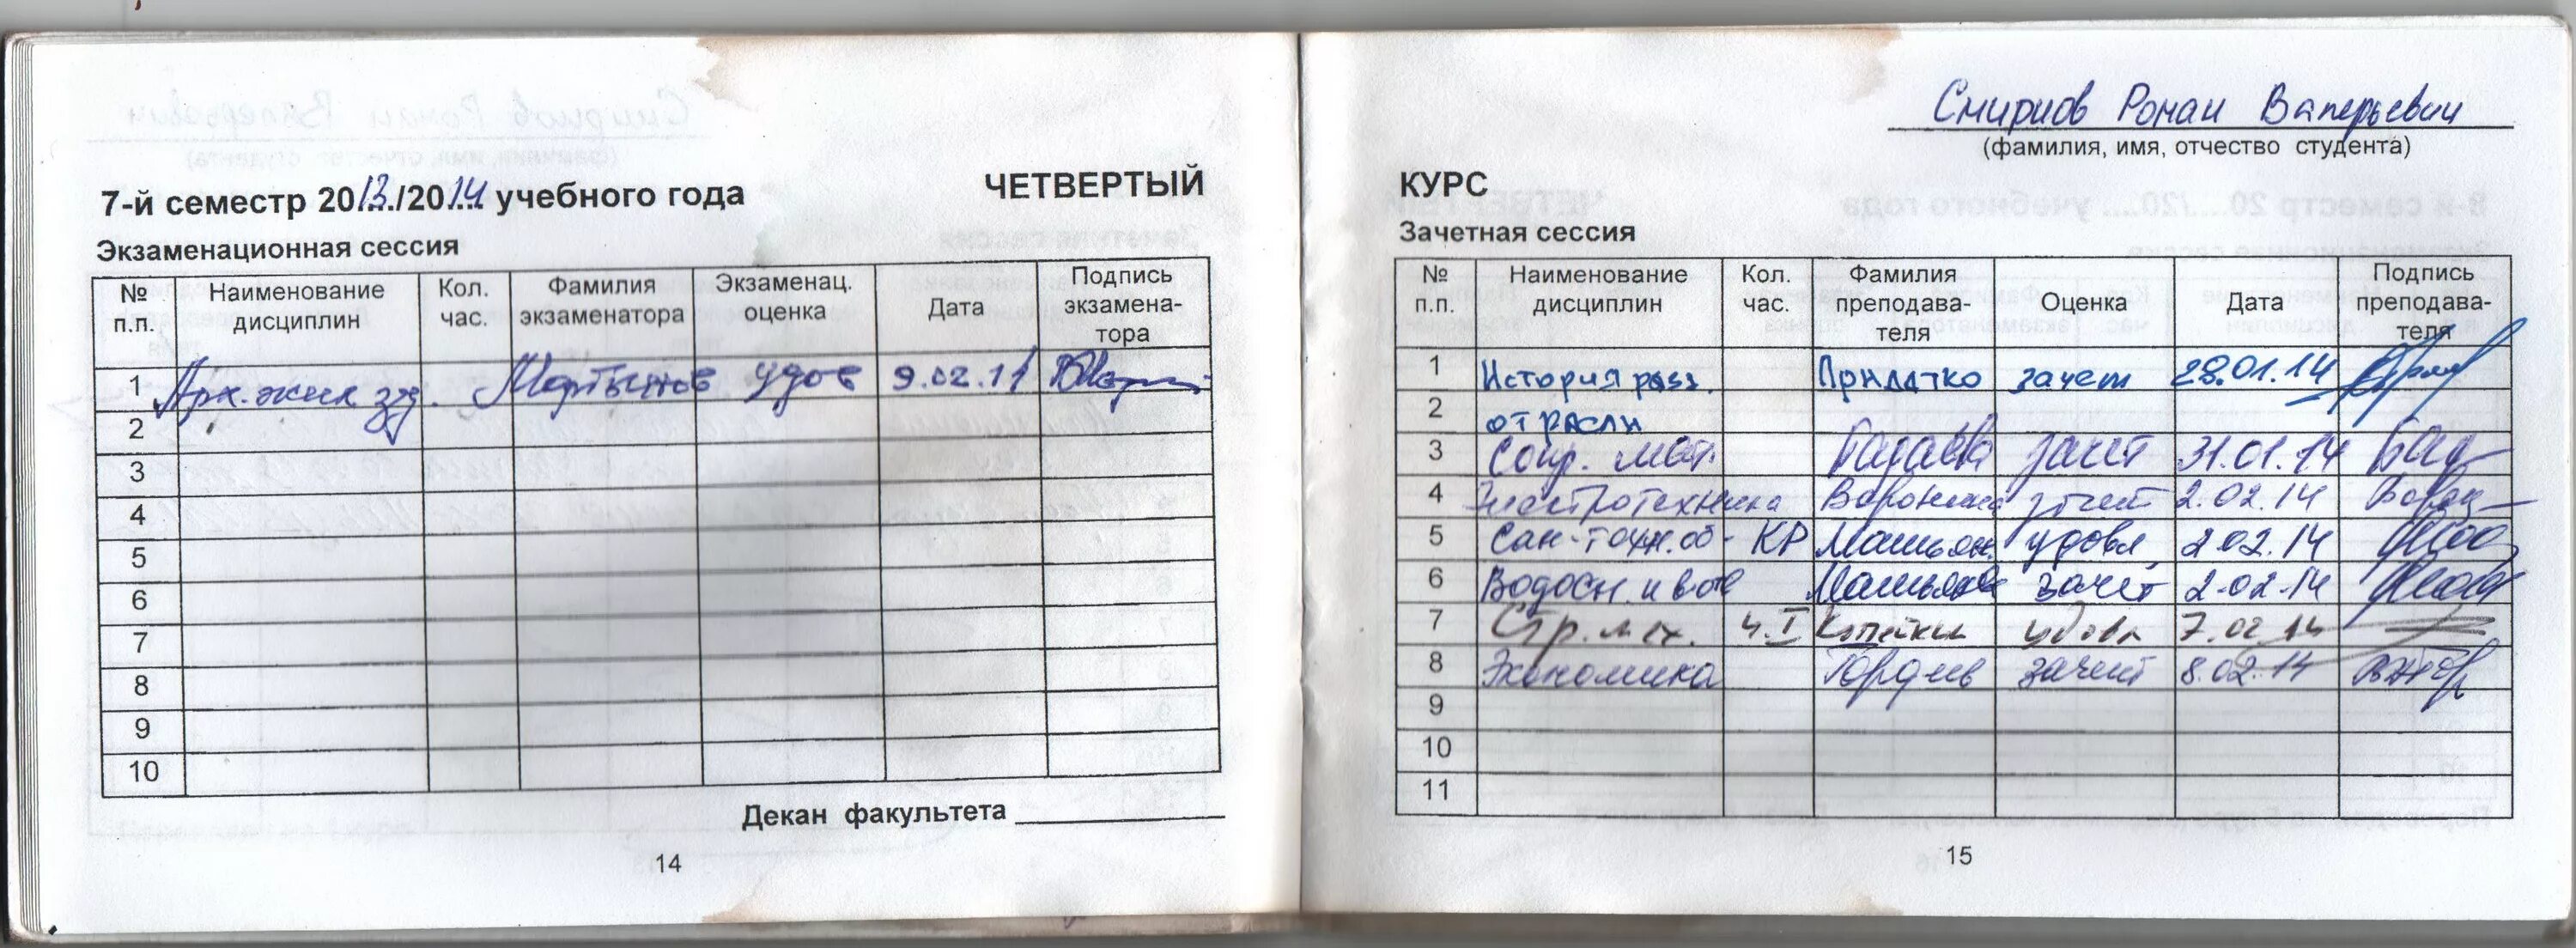 7-й семестр 2013/2014 учебного года
ЧЕТВЕРТЫЙ
Экзаменационная сессия
№ п.п. Наименование дисциплин Кол. час. Фамилия экзаменатора Экзаменац. оценка Дата Подпись экзамена-тора
1 Арх. жил зд. Мартынов удов 9.02.14
2
3
4
5
6
7
8
9
10
Декан факультета
14
Смирнов Роман Валерьевич
(фамилия, имя, отчество студента)
КУРС
Зачетная сессия
№ п.п. Наименование дисциплин Кол. час. Фамилия преподава-теля Оценка Дата Подпись преподава-теля
1 История разв. Придатко зачет 28.01.14
2 отрасли
3 Сопр. мат. зачет 31.01.14
4 Электротехника Воронина зачет 2.02.14
5 Сан-техн. об- КР удовл 2.02.14
6 Водосн. и вот зачет 2.02.14
7 Стр. мех. ч. I Копейкин удовл 7.02.14
8 Экономика Гордеев зачет 8.02.14
9
10
11
15